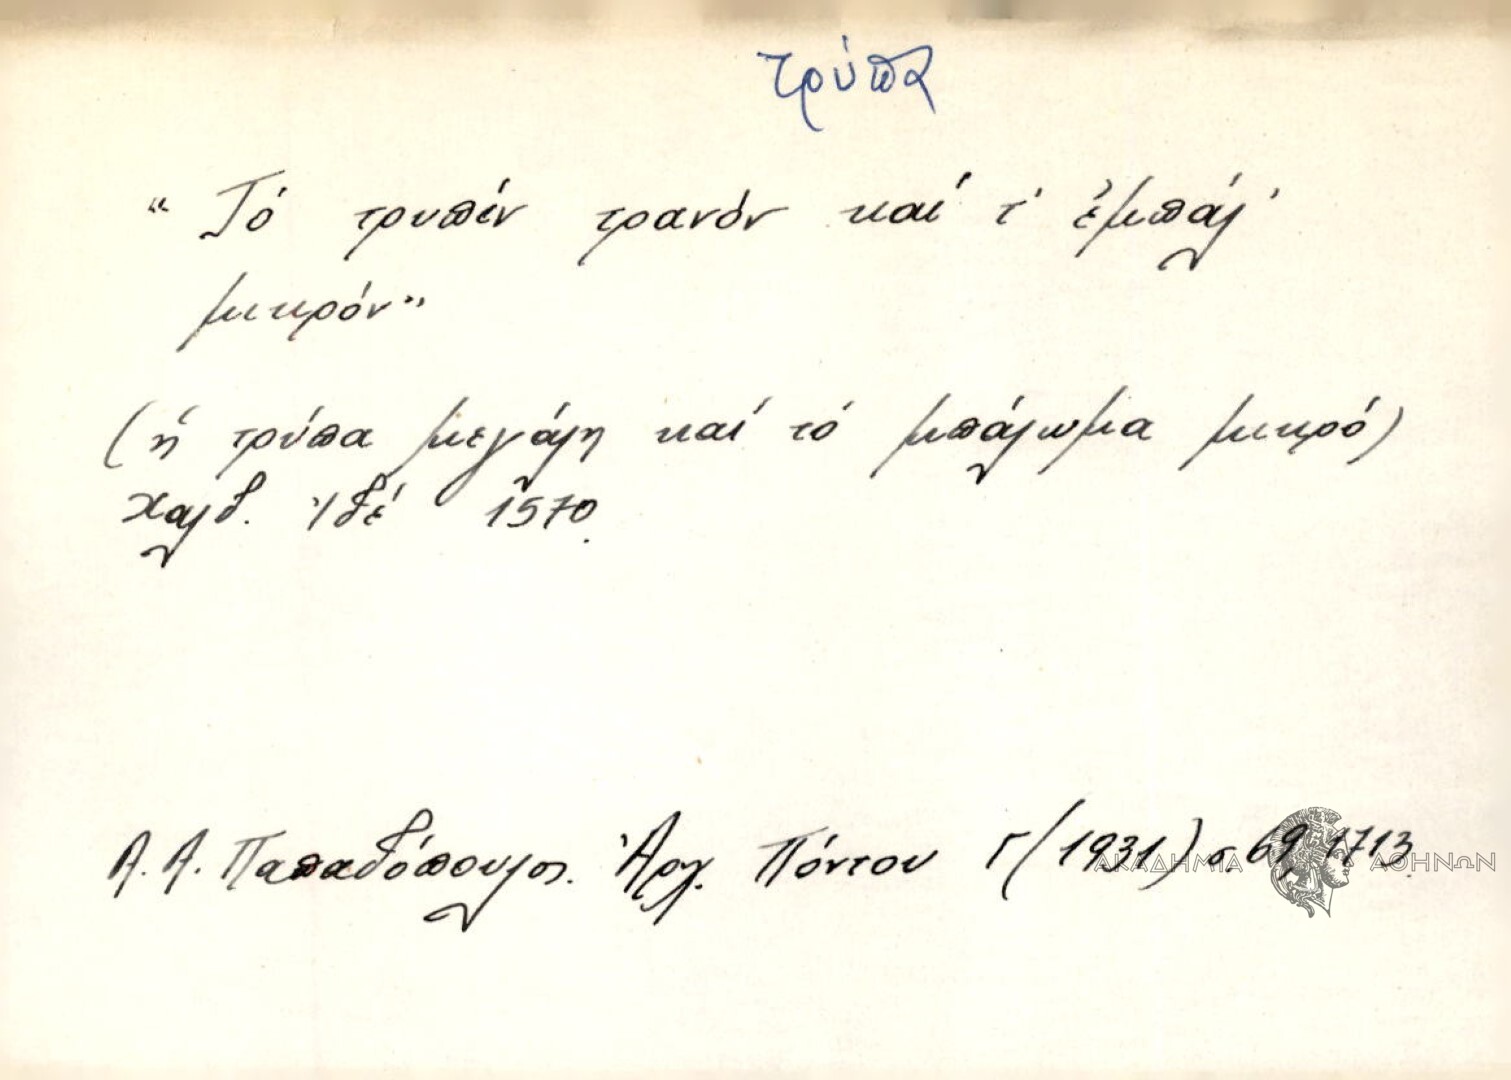 τρύπα
“ Τό τρυπίν τρανόν καί τ' ἐμπάλ'
μικρόν”
(ἡ τρύπα μεγάλη καί τό μπάλωμα μικρό)
Χαλδ. Ἰδέ 1570.
Α.Α. Παπαδόπουλος. Ἀρχ. Πόντου Γ (1931) σ. 69, 1713
ΑΚΑΔΗΜΙΑ ΑΘΗΝΩΝ